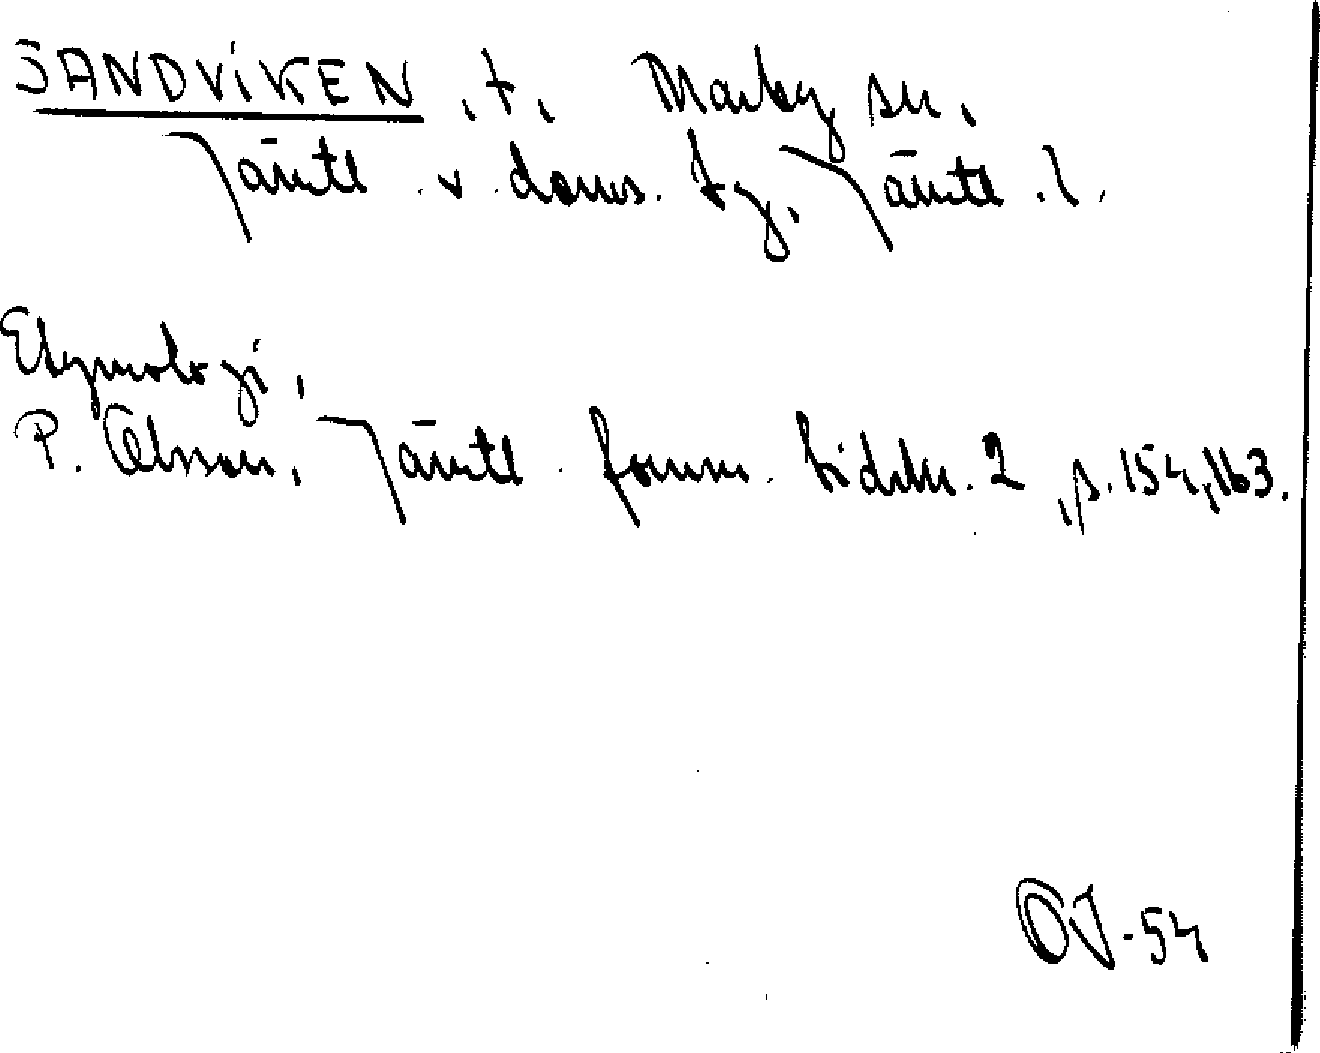 SANDVIKEN, t. Marby sn,
Jämtl. v. doms. tg, Jämtl. l.
Etymologi,
P. Olsson, Jämtl. fornm. tidskr. 2, s. 154, 163.
OJ-54